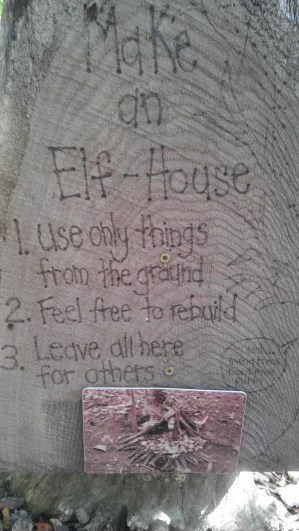 Make
an
Elf-House
1. Use only things
from the ground
2. Feel free to rebuild
3. Leave all here
for others